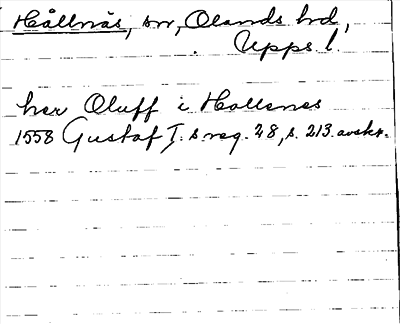 Hållnäs, sn, Olands hrd,
Upps. l.
her Oluff i Hollenes
1558 Gustaf I:s reg. 28, s. 213. avskr.